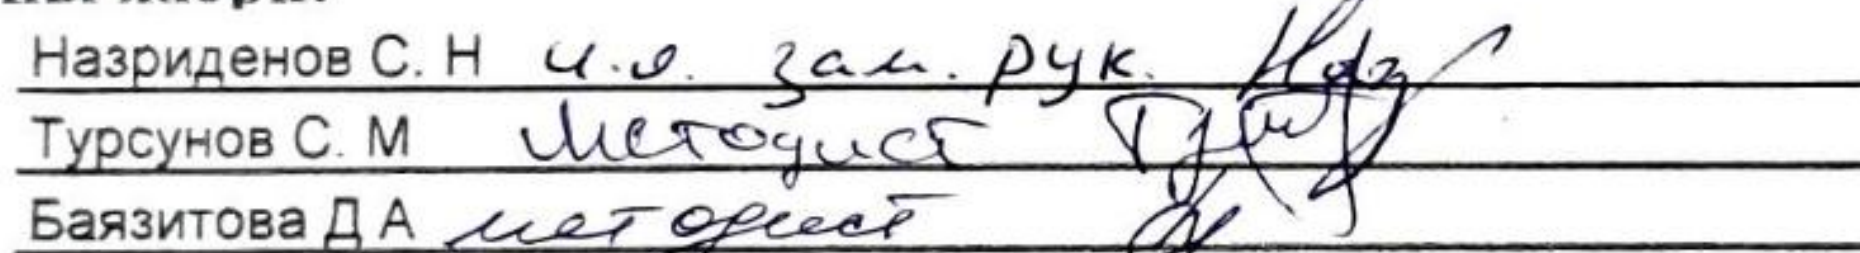 Назриденов С. Н и.о. зам. рук.
Турсунов С. М Методист
Баязитова Д А методист